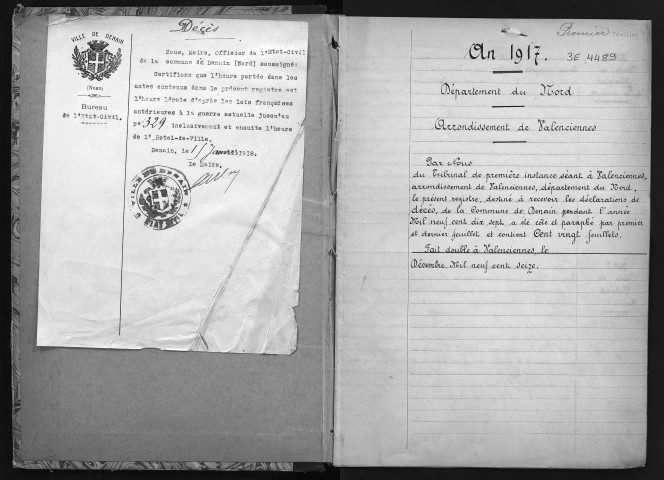 VILLE DE DENAIN
(Nord)
Bureau
de l'Etat-Civil.
Décès
Nous, Maire, Officier de l'Etat-Civil
de la commune de Denain (Nord) soussigné:
Certifions que l'heure portée dans les
actes contenus dans le présent registre est
l'heure légale d'après les lois françaises
antérieures à la guerre actuelle jusqu'au
n° 329 inclusivement et ensuite l'heure
de l'Hotel-de-Ville.
Denain, le 15 Janvier 1918.
Le Maire,
VILLE DE DENAIN
Premier
An 1917.
3E 4489
Département du Nord
Arrondissement de Valenciennes
Par Nous
du Tribunal de première instance séant à Valenciennes,
arrondissement de Valenciennes, département du Nord,
le présent registre, destiné à recevoir les déclarations de
décès, de la Commune de Denain pendant l'année
Mil neuf cent dix sept, a été côté et paraphé par premier
et dernier feuillet et contient Cent vingt feuillets.
Fait double à Valenciennes, le
Décembre, Mil neuf cent seize.